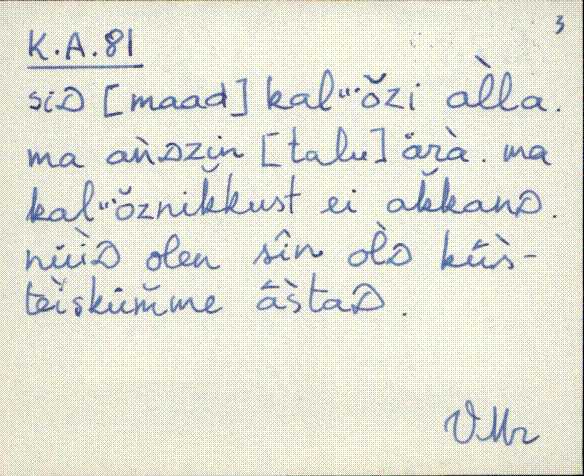 3
K.A.81
siᴅ [maad] kal‟ǒzi àlla.
ma aǹᴅzin [talu] ärà. ma
kal‟ǒznik̆kust ei ak̆kanᴅ.
nüìᴅ olen sîn olᴅ kūs̀-
teìsküm̆me âs̀taᴅ.
VMr